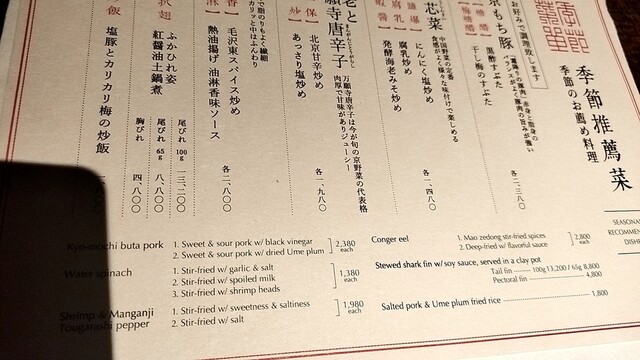 季節推薦菜
季節のお薦め料理
お好みで調理致します
京もち豚
黒酢すぶた
干し梅のすぶた
各二、三八〇
中国野菜の定番
食感がよく様々な味付けで楽しめる
芯菜
にんにく塩炒め
腐乳炒め
発酵海老みそ炒め
各一、四八〇
万願寺唐辛子は今が旬の京野菜の代表格
肉厚で甘味がありジューシー
老と
願寺唐辛子
北京甘辛炒め
あっさり塩炒め
各一、九八〇
で脂のりもよく繊細
カリッと中はふんわり
毛沢東スパイス炒め
熱油揚げ 油淋香味ソース
各二、八〇〇
ふかひれ姿
紅醤油土鍋煮
尾びれ 100g 一三、二〇〇
尾びれ 65g 八、八〇〇
胸びれ 四、八〇〇
塩豚とカリカリ梅の炒飯
SEASONA
RECOMMEN
DISH
Kyo-mochi buta pork
1. Sweet & sour pork w/ black vinegar
2. Sweet & sour pork w/ dried Ume plum
2,380 each
Water spinach
1. Stir-fried w/ garlic & salt
2. Stir-fried w/ spoiled milk
3. Stir-fried w/ shrimp heads
1,380 each
Shrimp & Manganji
Tougarashi pepper
1. Stir-fried w/ sweetness & saltiness
2. Stir-fried w/ salt
1,980 each
Conger eel
1. Mao zedong stir-fried spices
2. Deep-fried w/ flavorful sauce
2,800 each
Stewed shark fin w/ soy sauce, served in a clay pot
Tail fin 100g 13,200 / 65g 8,800
Pectoral fin 4,800
Salted pork & Ume plum fried rice 1,800